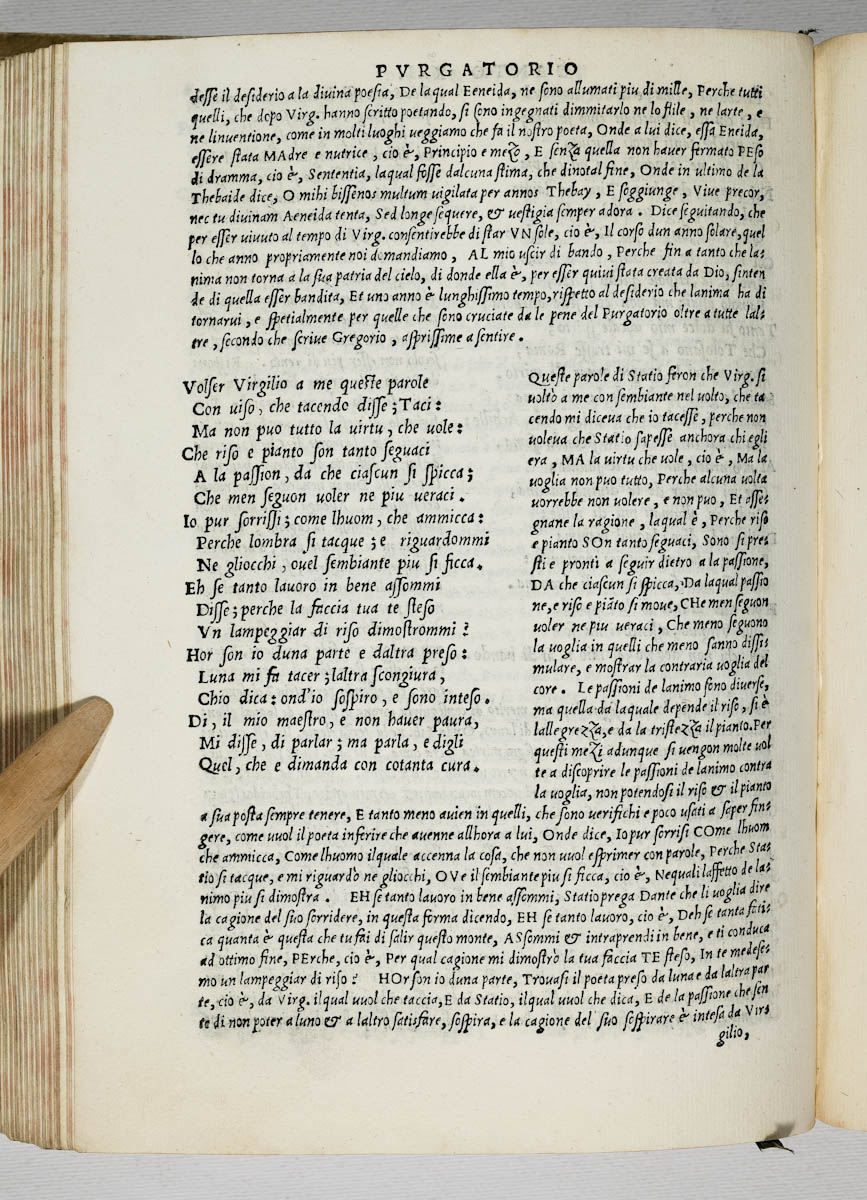 PVRGATORIO
desse il desiderio a la diuina poesia, De laqual Eeneida, ne sono allumati piu di mille, Perche tutti
quelli, che dopo Virg. hanno scritto poetando, si sono ingegnati dimmitarlo ne lo stile, ne larte, e
ne linuentione, come in molti luoghi ueggiamo che fa il nostro poeta, Onde a lui dice, essa Eneida,
essere stata MAdre e nutrice, cio è, Principio e mezo, E senza quella non hauer fermato PEso
di dramma, cio è, Sententia, laqual fosse dalcuna stima, che dinotal fine, Onde in ultimo de la
Thebaide dice, O mihi bissenos multum uigilata per annos Thebay, E soggiunge, Viue precor,
nec tu diuinam Aeneida tenta, Sed longe sequere, & uestigia semper adora. Dice seguitando, che
per esser uiuuto al tempo di Virg. consentirebbe di star VN sole, cio è, Il corso dun anno solare, quel
lo che anno propriamente noi domandiamo, AL mio uscir di bando, Perche fin a tanto che la-
nima non torna a la sua patria del cielo, di donde ella è, per esser quiui stata creata da Dio, sinten
de di quella esser bandita, Et uno anno è lunghissimo tempo, rispetto al desiderio che lanima ha di
tornarui, e spetialmente per quelle che sono cruciate da le pene del Purgatorio oltre a tutte lal-
tre, secondo che scriue Gregorio, asprissime a sentire.
Volser Virgilio a me queste parole
Con uiso, che tacendo disse; Taci:
Ma non puo tutto la uirtu, che uole:
Che riso e pianto son tanto seguaci
A la passion, da che ciascun si spicca;
Che men seguon uoler ne piu ueraci.
Io pur sorrissi; come lhuom, che ammicca:
Perche lombra si tacque; e riguardommi
Ne gliocchi, ouel sembiante piu si ficca.
Eh se tanto lauoro in bene assommi
Disse; perche la faccia tua te steso
Vn lampeggiar di riso dimostrommi?
Hor son io duna parte e daltra preso:
Luna mi fa tacer; laltra scongiura,
Chio dica: ond'io sospiro, e sono inteso.
Di, il mio maestro, e non hauer paura,
Mi disse, di parlar; ma parla, e digli
Quel, che e dimanda con cotanta cura.
Queste parole di Statio feron che Virg. si
uoltò a me con sembiante nel uolto, che ta
cendo mi diceua che io tacesse, perche non
uoleua che Statio sapesse anchora chi egli
era, MA la uirtu che uole, cio è, Ma la
uoglia non puo tutto, Perche alcuna uolta
uorrebbe non uolere, e non puo, Et asse-
gnane la ragione, laqual è, Perche riso
e pianto SOn tanto seguaci, Sono si pre-
sti e pronti a seguir dietro a la passione,
DA che ciascun si spicca, Da laqual passio
ne, e riso e piāto si moue, CHe men seguon
uoler ne piu ueraci, Che meno seguono
la uoglia in quelli che meno sanno dissi-
mulare, e mostrar la contraria uoglia del
core. Le passioni de lanimo sono diuerse,
ma quella da laquale depende il riso, si è
lallegrezza, e da la tristezza il pianto. Per
questi mezi adunque si uengon molte uol
te a discoprire le passioni de lanimo contra
la uoglia, non potendosi il riso & il pianto
a sua posta sempre tenere, E tanto meno auien in quelli, che sono uerifichi e poco usati a saper fin-
gere, come uuol il poeta inferire che auenne allhora a lui, Onde dice, Io pur sorrisi COme lhuom
che ammicca, Come lhuomo ilquale accenna la cosa, che non uuol esprimer con parole, Perche Sta-
tio si tacque, e mi riguardò ne gliocchi, OVe il sembiante piu si ficca, cio è, Nequali laffetto de la-
nimo piu si dimostra. EH se tanto lauoro in bene assommi, Statio prega Dante che li uoglia dire
la cagione del suo sorridere, in questa forma dicendo, EH se tanto lauoro, cio è, Deh se tanta fati-
ca quanta è questa che tu fai di salir questo monte, ASsommi & intraprendi in bene, e ti conduca
ad ottimo fine, PErche, cio è, Per qual cagione mi dimostrò la tua faccia TE steso, In te medese-
mo un lampeggiar di riso? HOr son io duna parte, Trouasi il poeta preso da luna e da laltra par
te, cio è, da Virg. il qual uuol che taccia, E da Statio, il qual uuol che dica, E de la passione che sen
te di non poter a luno & a laltro satisfare, sospira, e la cagione del suo sospirare è intesa da Vir-
gilio,